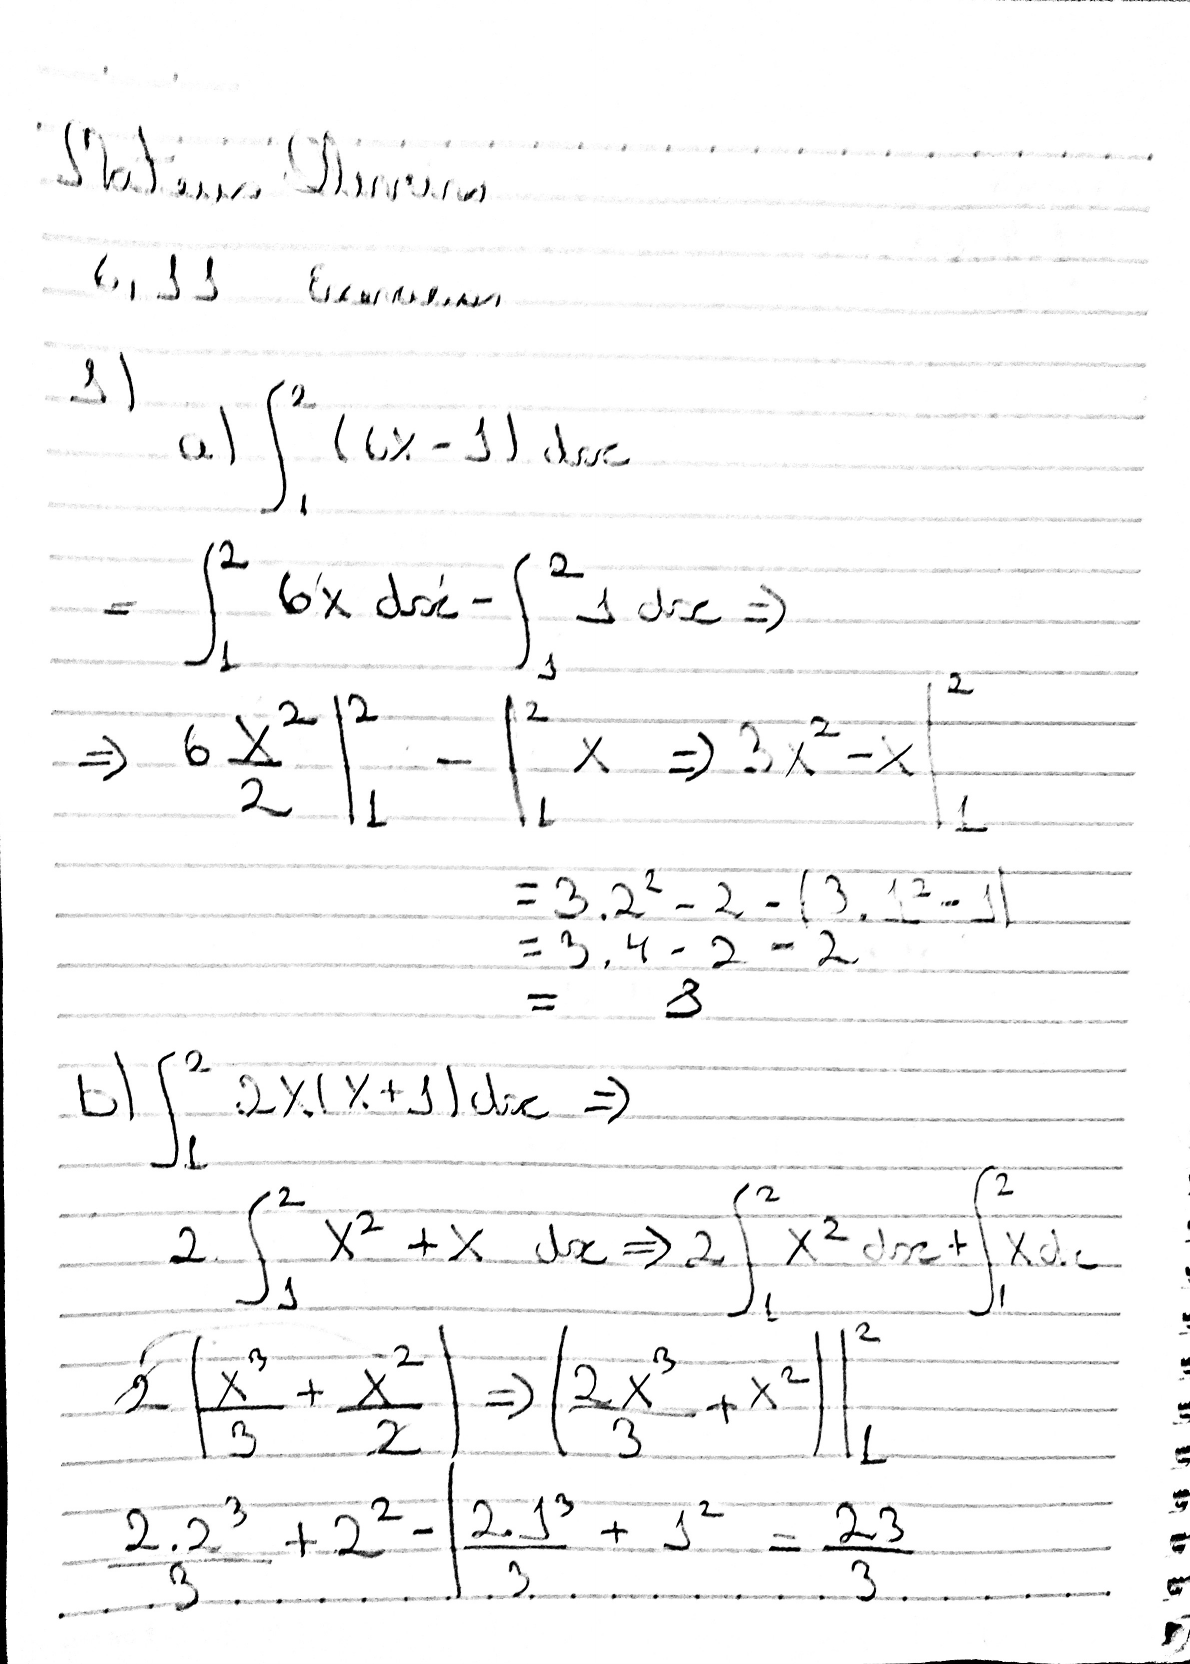 6.11
1)
a) ∫₁² (6x - 1) dx
= ∫₁² 6x dx - ∫₁² 1 dx ⇒
⇒ 6 x²/2 |₁² - |₁² x ⇒ 3x² - x |₁²
= 3.2² - 2 - (3.1² - 1)
= 3.4 - 2 - 2
= 8
b) ∫₁² 2x(x+1) dx ⇒
2 ∫₁² x² + x dx ⇒ 2 ∫₁² x² dx + ∫₁² x dx
2 (x³/3 + x²/2) ⇒ (2x³/3 + x²) |₁²
2.2³/3 + 2² - (2.1³/3 + 1² = 23/3